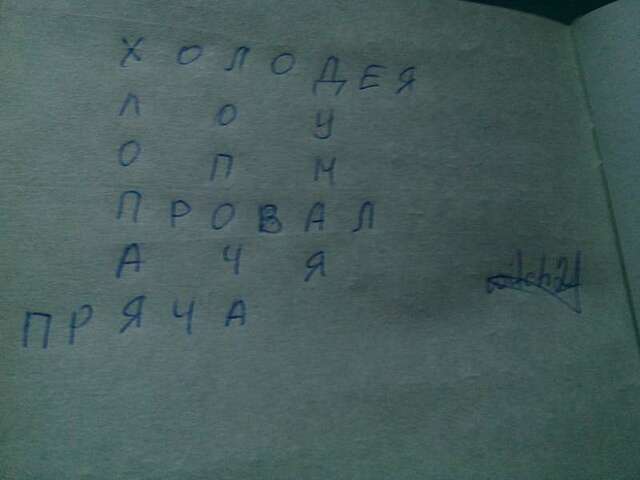 ХОЛОДЕЯ
Л О У
О П М
ПРОВАЛ
А Ч Я
ПРЯЧА